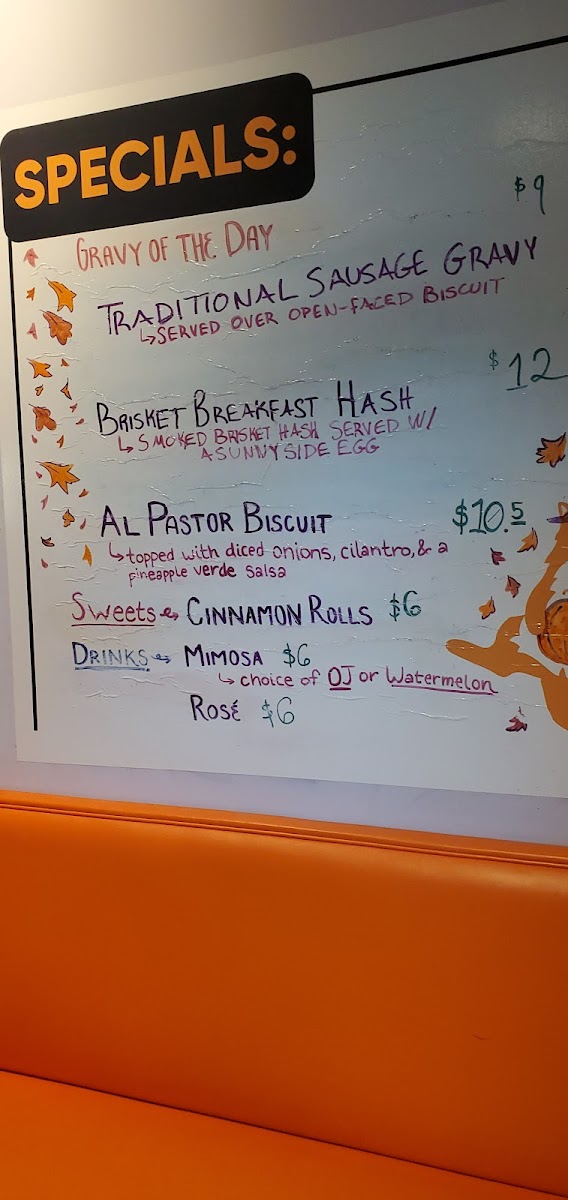 SPECIALS:
$9
GRAVY OF THE DAY
TRADITIONAL SAUSAGE GRAVY
↳SERVED OVER OPEN-FACED BISCUIT
$12
BRISKET BREAKFAST HASH
↳SMOKED BRISKET HASH SERVED W/
A SUNNYSIDE EGG
AL PASTOR BISCUIT $10.5
↳topped with diced onions, cilantro, & a
pineapple verde salsa
Sweets CINNAMON ROLLS $6
DRINKS MIMOSA $6
↳choice of OJ or Watermelon
Rosé $6